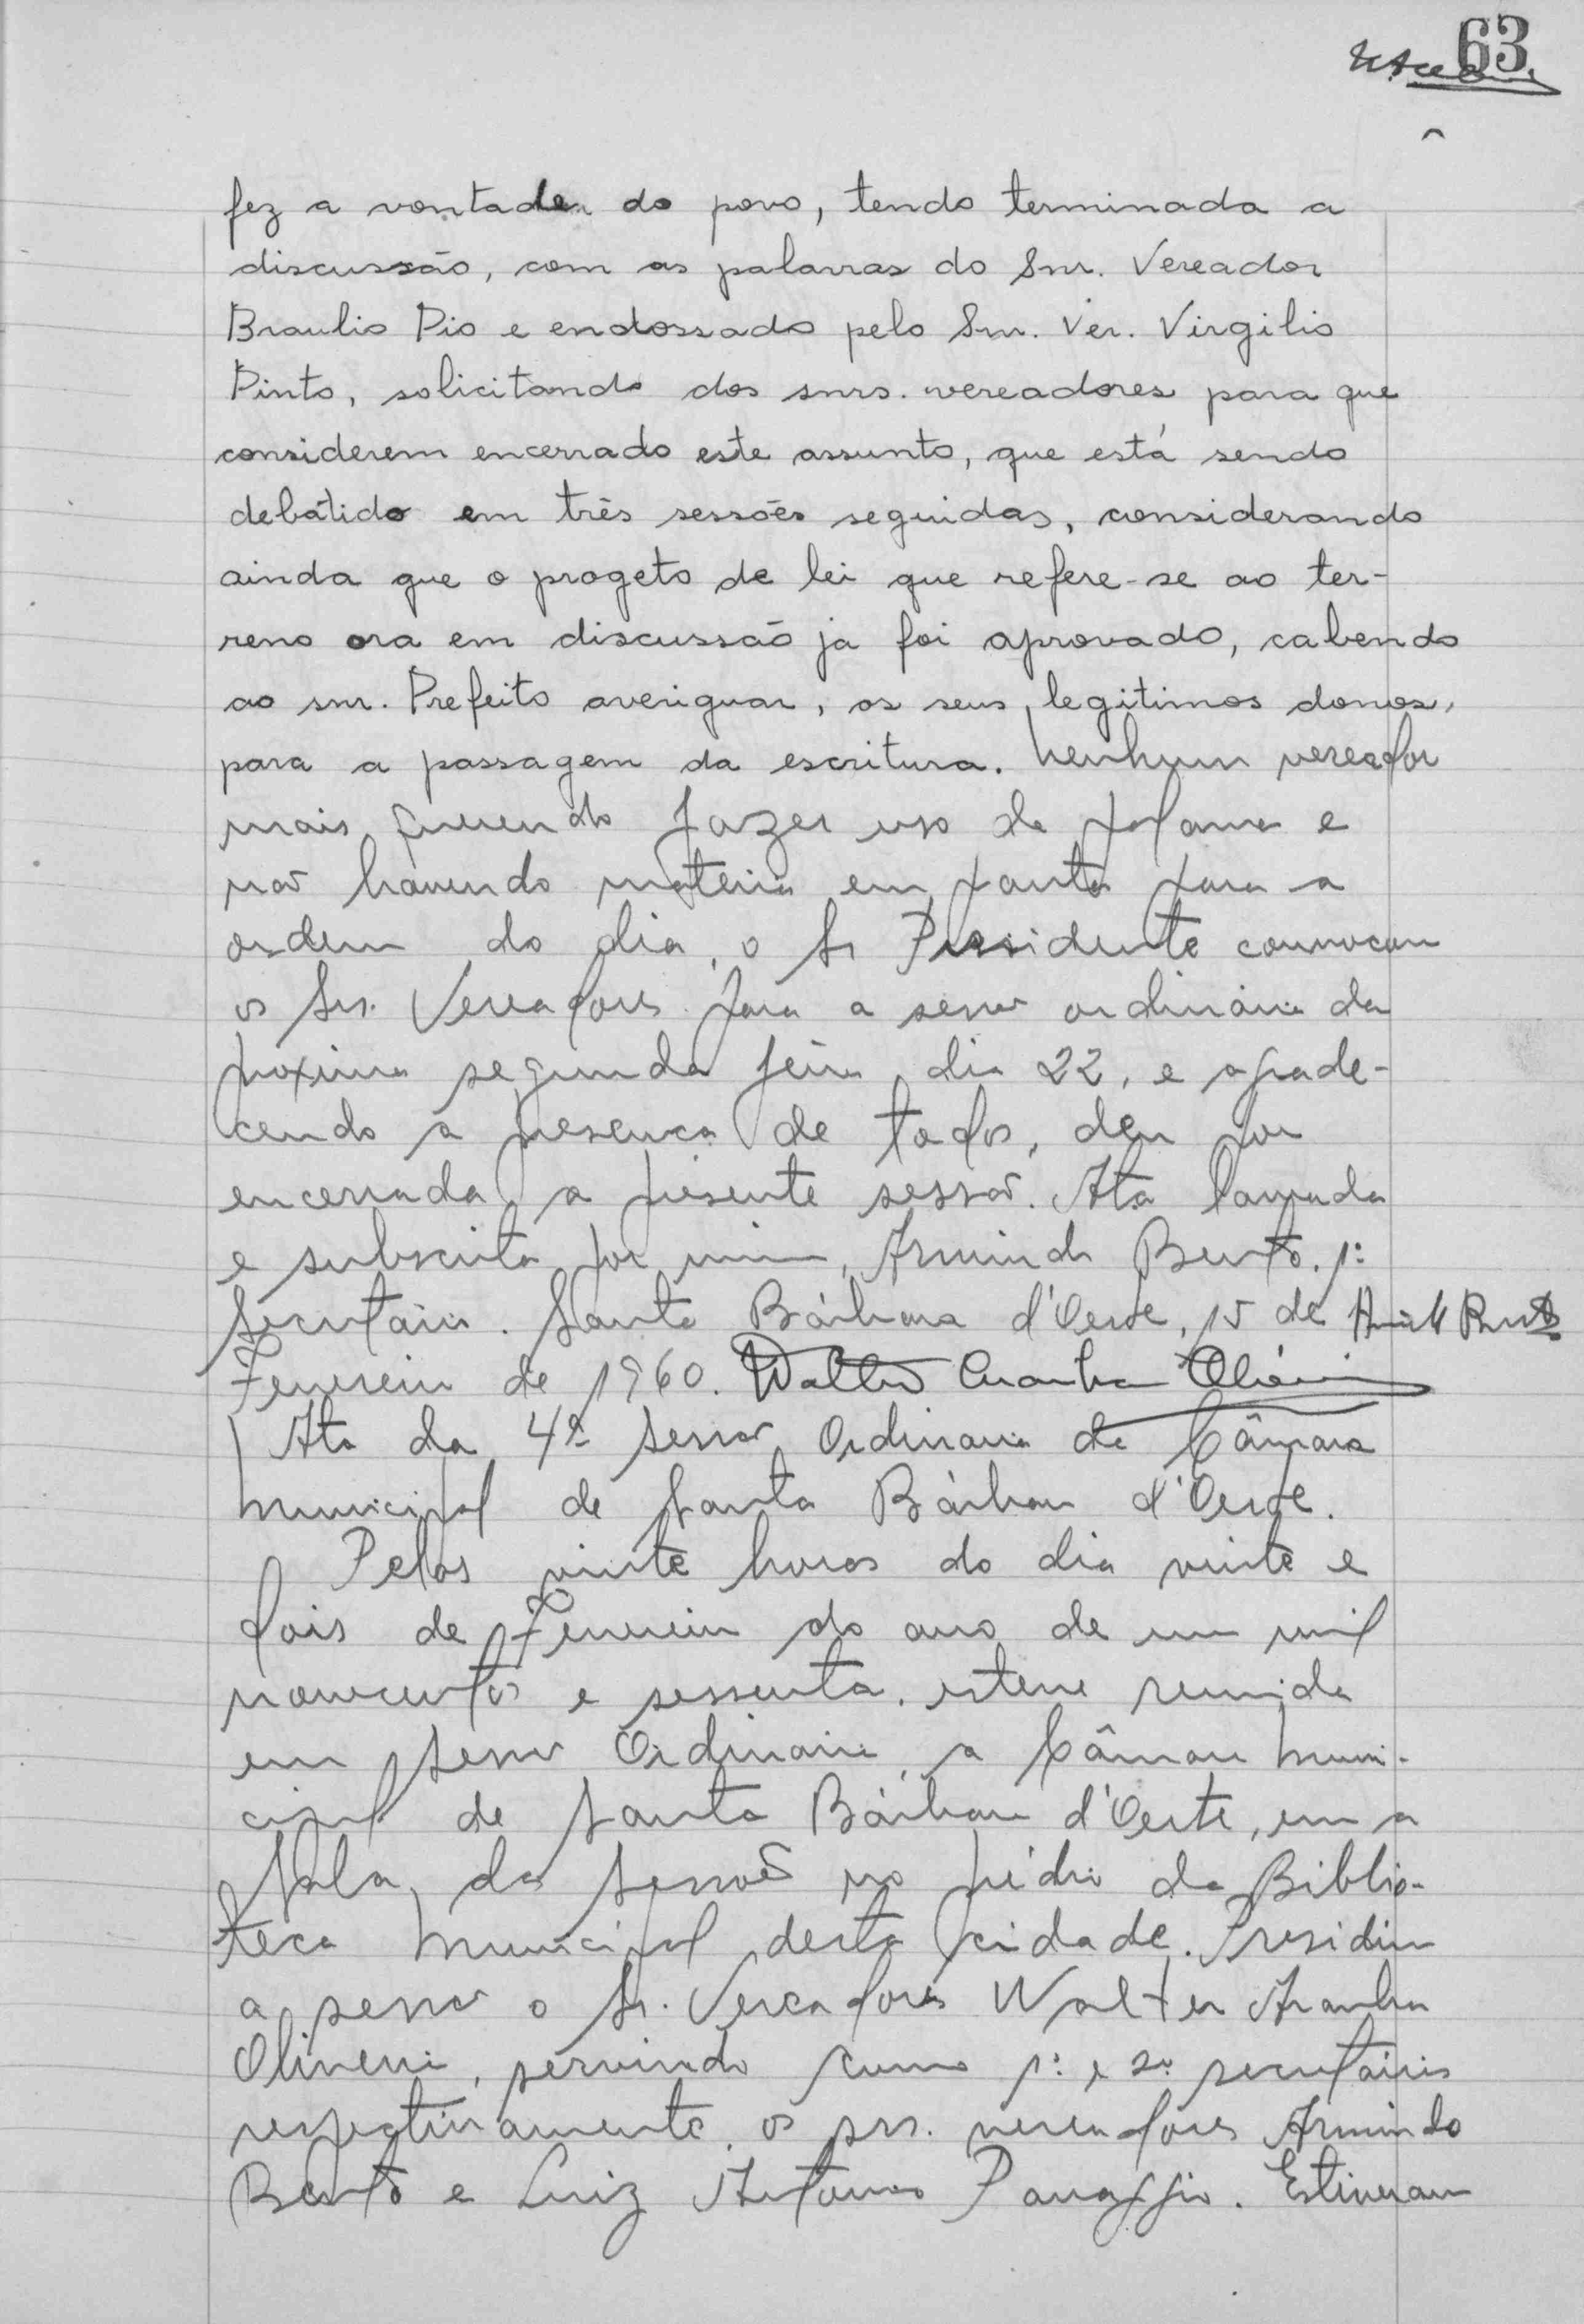 63
fez a vontade do povo, tendo terminada a
discussão, com as palavras do Snr. Vereador
Braulio Pio e endossado pelo Snr. Ver. Virgilio
Pinto, solicitando dos snrs. vereadores para que
considerem encerrado este assunto, que está sendo
debátido em três sessões seguidas, considerando
ainda que o progeto de lei que refere-se ao ter-
reno ora em discussão ja foi aprovado, cabendo
ao snr. Prefeito averiguar, os seus legitimos donos,
para a passagem da escritura. Nenhum vereador
mais querendo fazer uso da palavra e
não havendo materia em pauta para a
ordem do dia, o Sr Presidente convocou
os Srs. Vereadores para a sessão ordinária da
proxima segunda feira dia 22, e agrade-
cendo a presença de todos, deu por
encerrada a presente sessão. Ata lavrada
e subscrita por mim, Armindo Bento. 1º
Secretário. Santa Bárbara d'Oeste, 15 de
Fevereiro de 1960. Walter Aranha Oliveira
Ata da 4ª sessão Ordinaria da Câmara
Municipal de Santa Bárbara d'Oeste.
Pelas vinte horas do dia vinte e
dois de Fevereiro do ano de um mil
novecentos e sessenta, esteve reunida
em sessão Ordinaria, a Câmara Muni-
cipal de Santa Bárbara d'Oeste, em a
Sala das Sessões no prédio da Biblio-
teca Municipal desta cidade. Presidiu
a sessão o Sr. Vereadores Walter Aranha
Oliveira, servindo como 1º e 2º secretários
respectivamente, os srs. vereadores Armindo
Bento e Luiz Antonio Panaggio. Estiveram